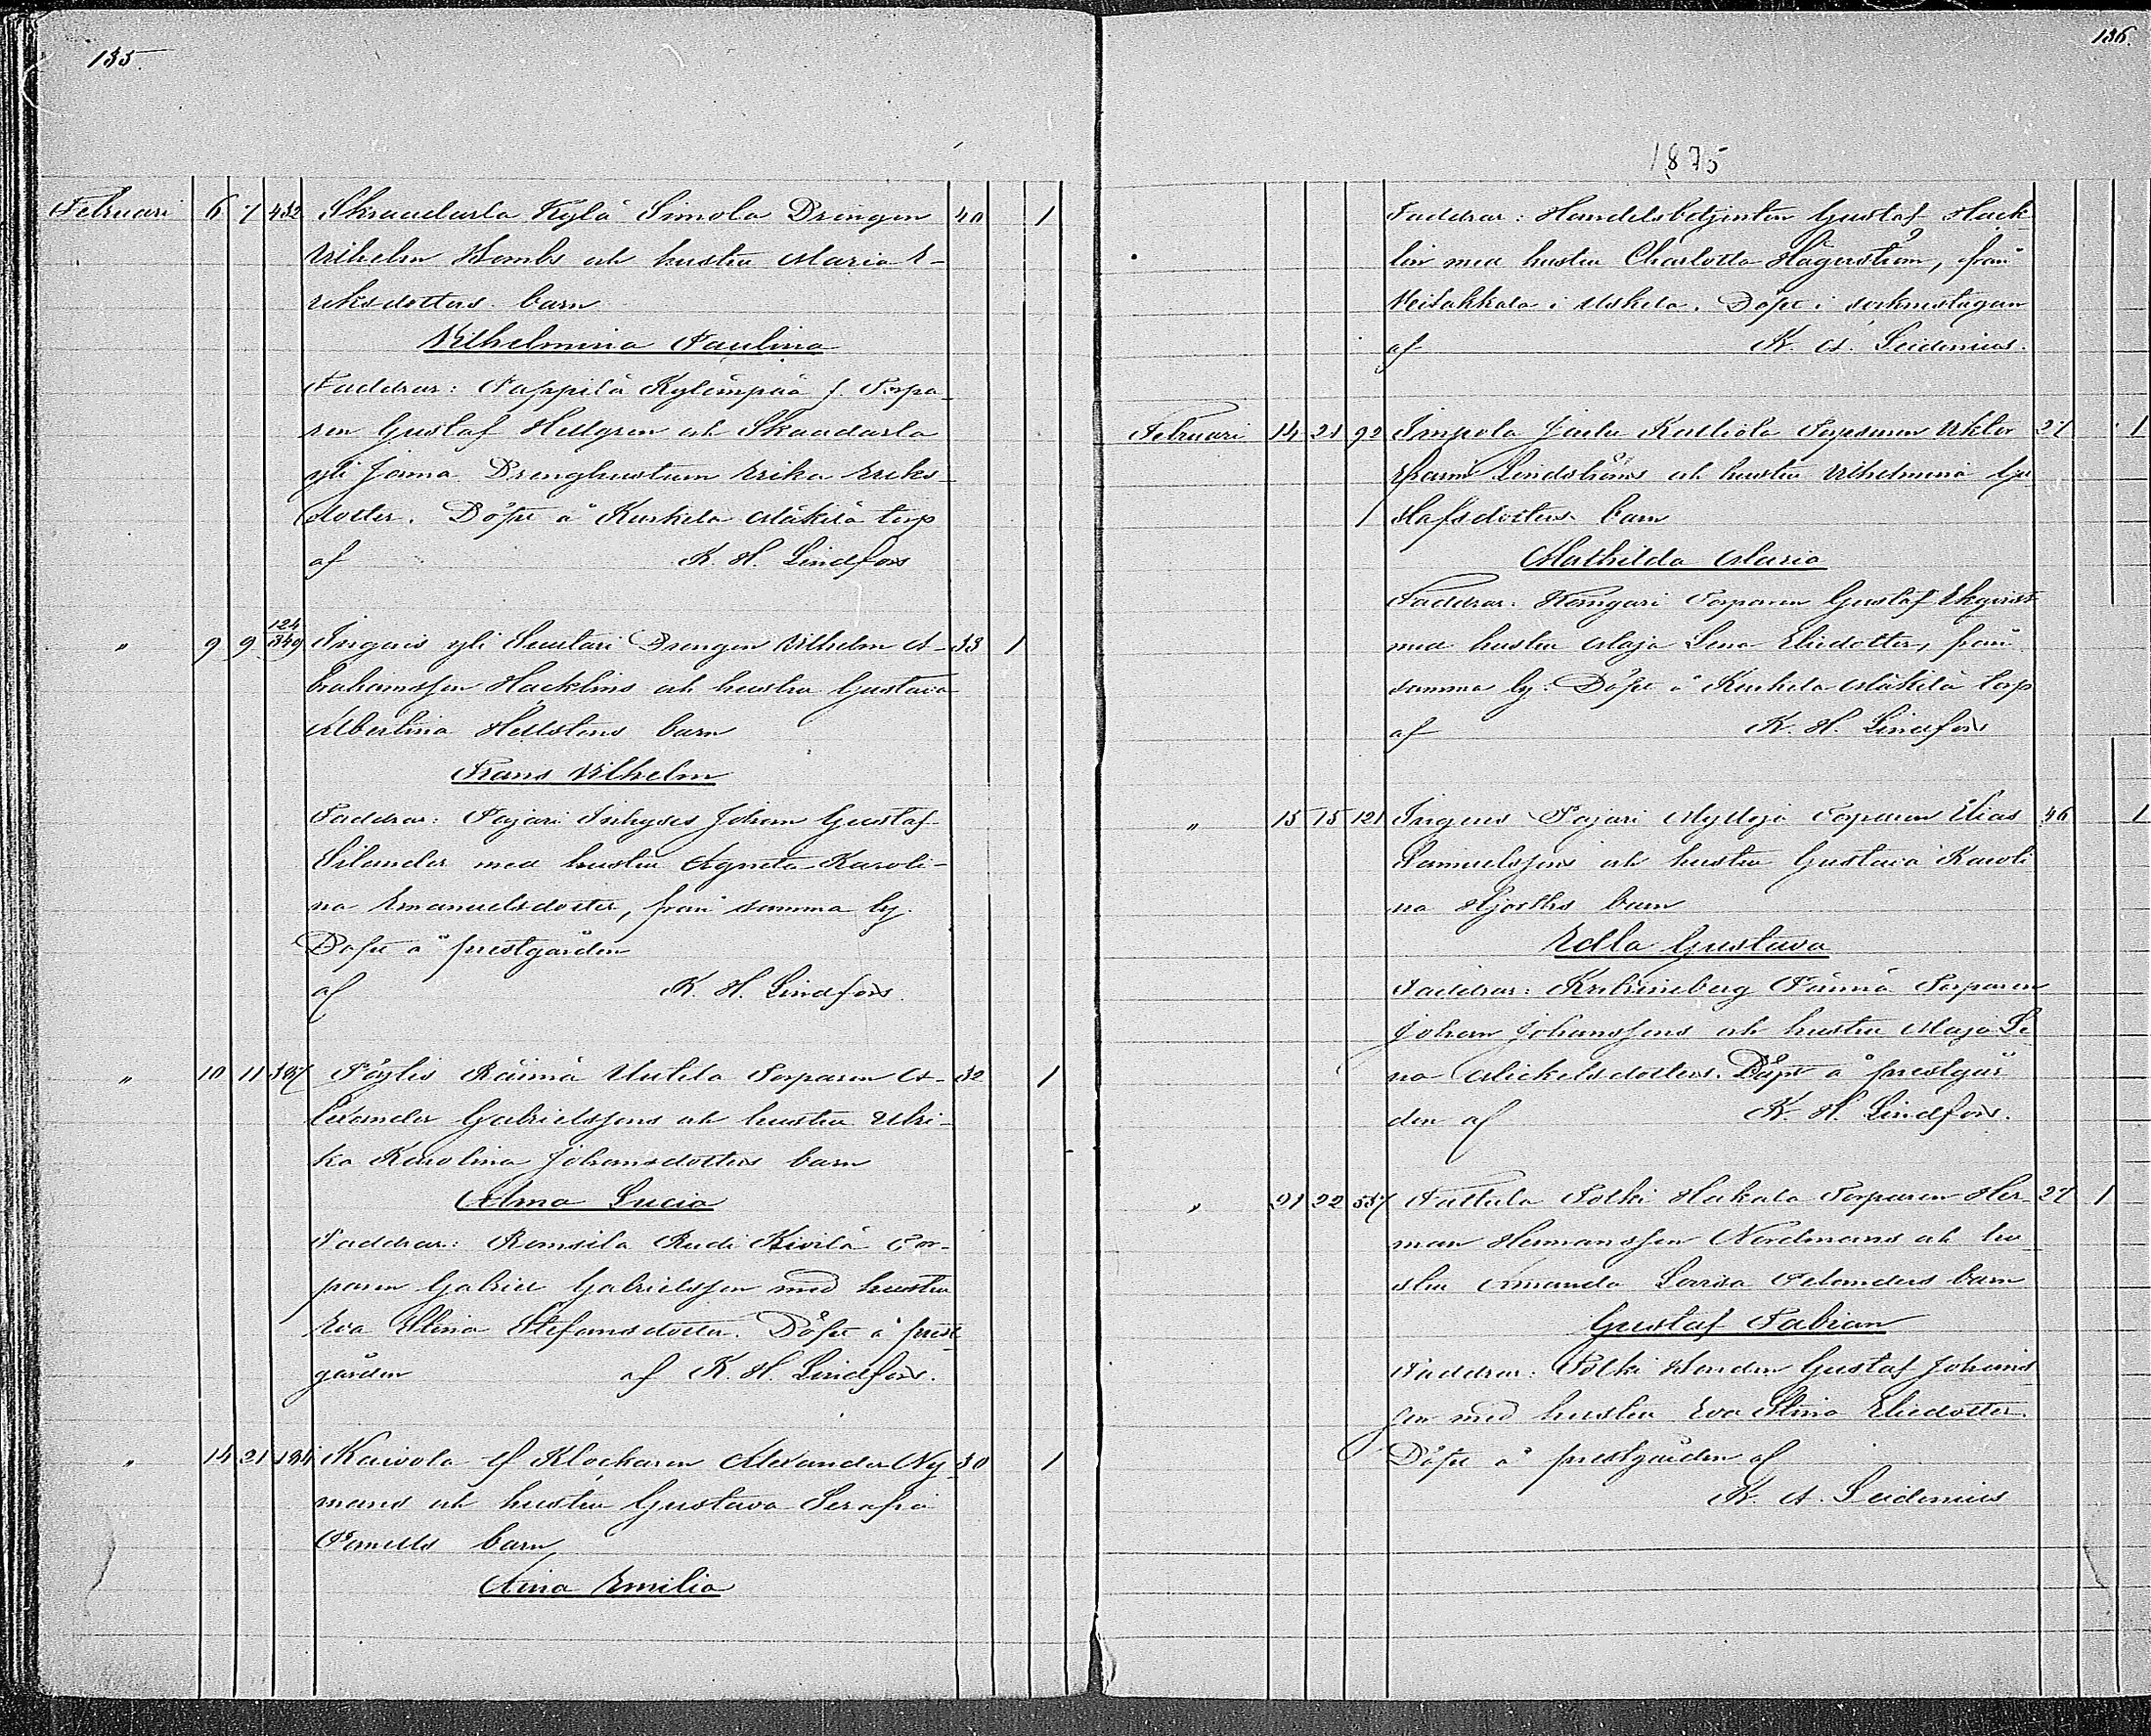 135.
Februari 6 7 432 Skraudarla Kylä Simola Drengen 40 1
Vilhelm Bombs och hustru Maria E-
riksdotters barn
Vilhelmina Paulina
Faddrar: Pappila Kylänpää f. Torpa-
ren Gustaf Hellgren och Skraudarla
yli Jonna Drenghustrun Erika Eriks-
dotter. Döpt å Kurkela Mäkilä torp
af K. H. Lindfors
" 9 9 124 349 Ingeris yli Suutari Drengen Vilhelm A- 33 1
brahamsson Hacklins och hustru Gustava
Albertina Hellstens barn
Frans Vilhelm
Faddrar: Pajari Inhyses Johan Gustaf
Silander med hustru Agneta Karoli-
na Emanuelsdotter, från samma by.
Döpt å prestgården
af K. H. Lindfors.
" 10 11 387 Pöylis Räimä Uutela Torparen A- 32 1
lexander Gabrielssons och hustru Ulri-
ka Karolina Johansdotters barn
Alma Lucia
Faddrar: Romsila Rudi Kivilä Tor-
paren Gabriel Gabrielsson med hustru
Eva Stina Stefansdotter. Döpt å prest-
gården af K. H. Lindfors.
" 14 21 194 Kaivola Klockaren Alexander Ny- 30 1
mans och hustru Gustava Serafia
barn
Aina Emilia
136.
1875
Faddrar: Handelsbetjenten Gustaf Hack-
lin med hustru Charlotta Hägerström, från
i Uskela. Döpt i sockenstugan
af K. A. Leidenius.
Februari 14 21 92 Impola Jaila Kalliola Torparen Viktor 27 1
Efraim Lindströms och hustru Vilhelmina Gu-
stafsdotters barn
Mathilda Maria
Faddrar: Kangari Torparen Gustaf Ekqvist
med hustru Maja Lena Eliedotter, från
samma by. Döpt å Kurkela Mäkilä torp
af K. H. Lindfors
" 15 15 121 Ingeris Pajari Myllyjä Torparen Elias 46 1
Samuelssons och hustru Gustava Karoli-
na Hjorths barn
Edla Gustava
Faddrar: Katrineberg Pärmä Torparen
Johan Johanssons och hustru Maja Le-
na Mickelsdotters. Döpt å prestgår-
den af K. H. Lindfors.
" 21 22 557 Pattula Polki Hakala Torparen Her- 27 1
man Hermansson Nordmans och hu-
stru Amanda Lovisa Felanders barn
Gustaf Fabian
Faddrar: Polki Bonden Gustaf Johans-
son med hustru Eva Stina Eliedotter.
Döpt å prestgården af
K. A. Leidenius